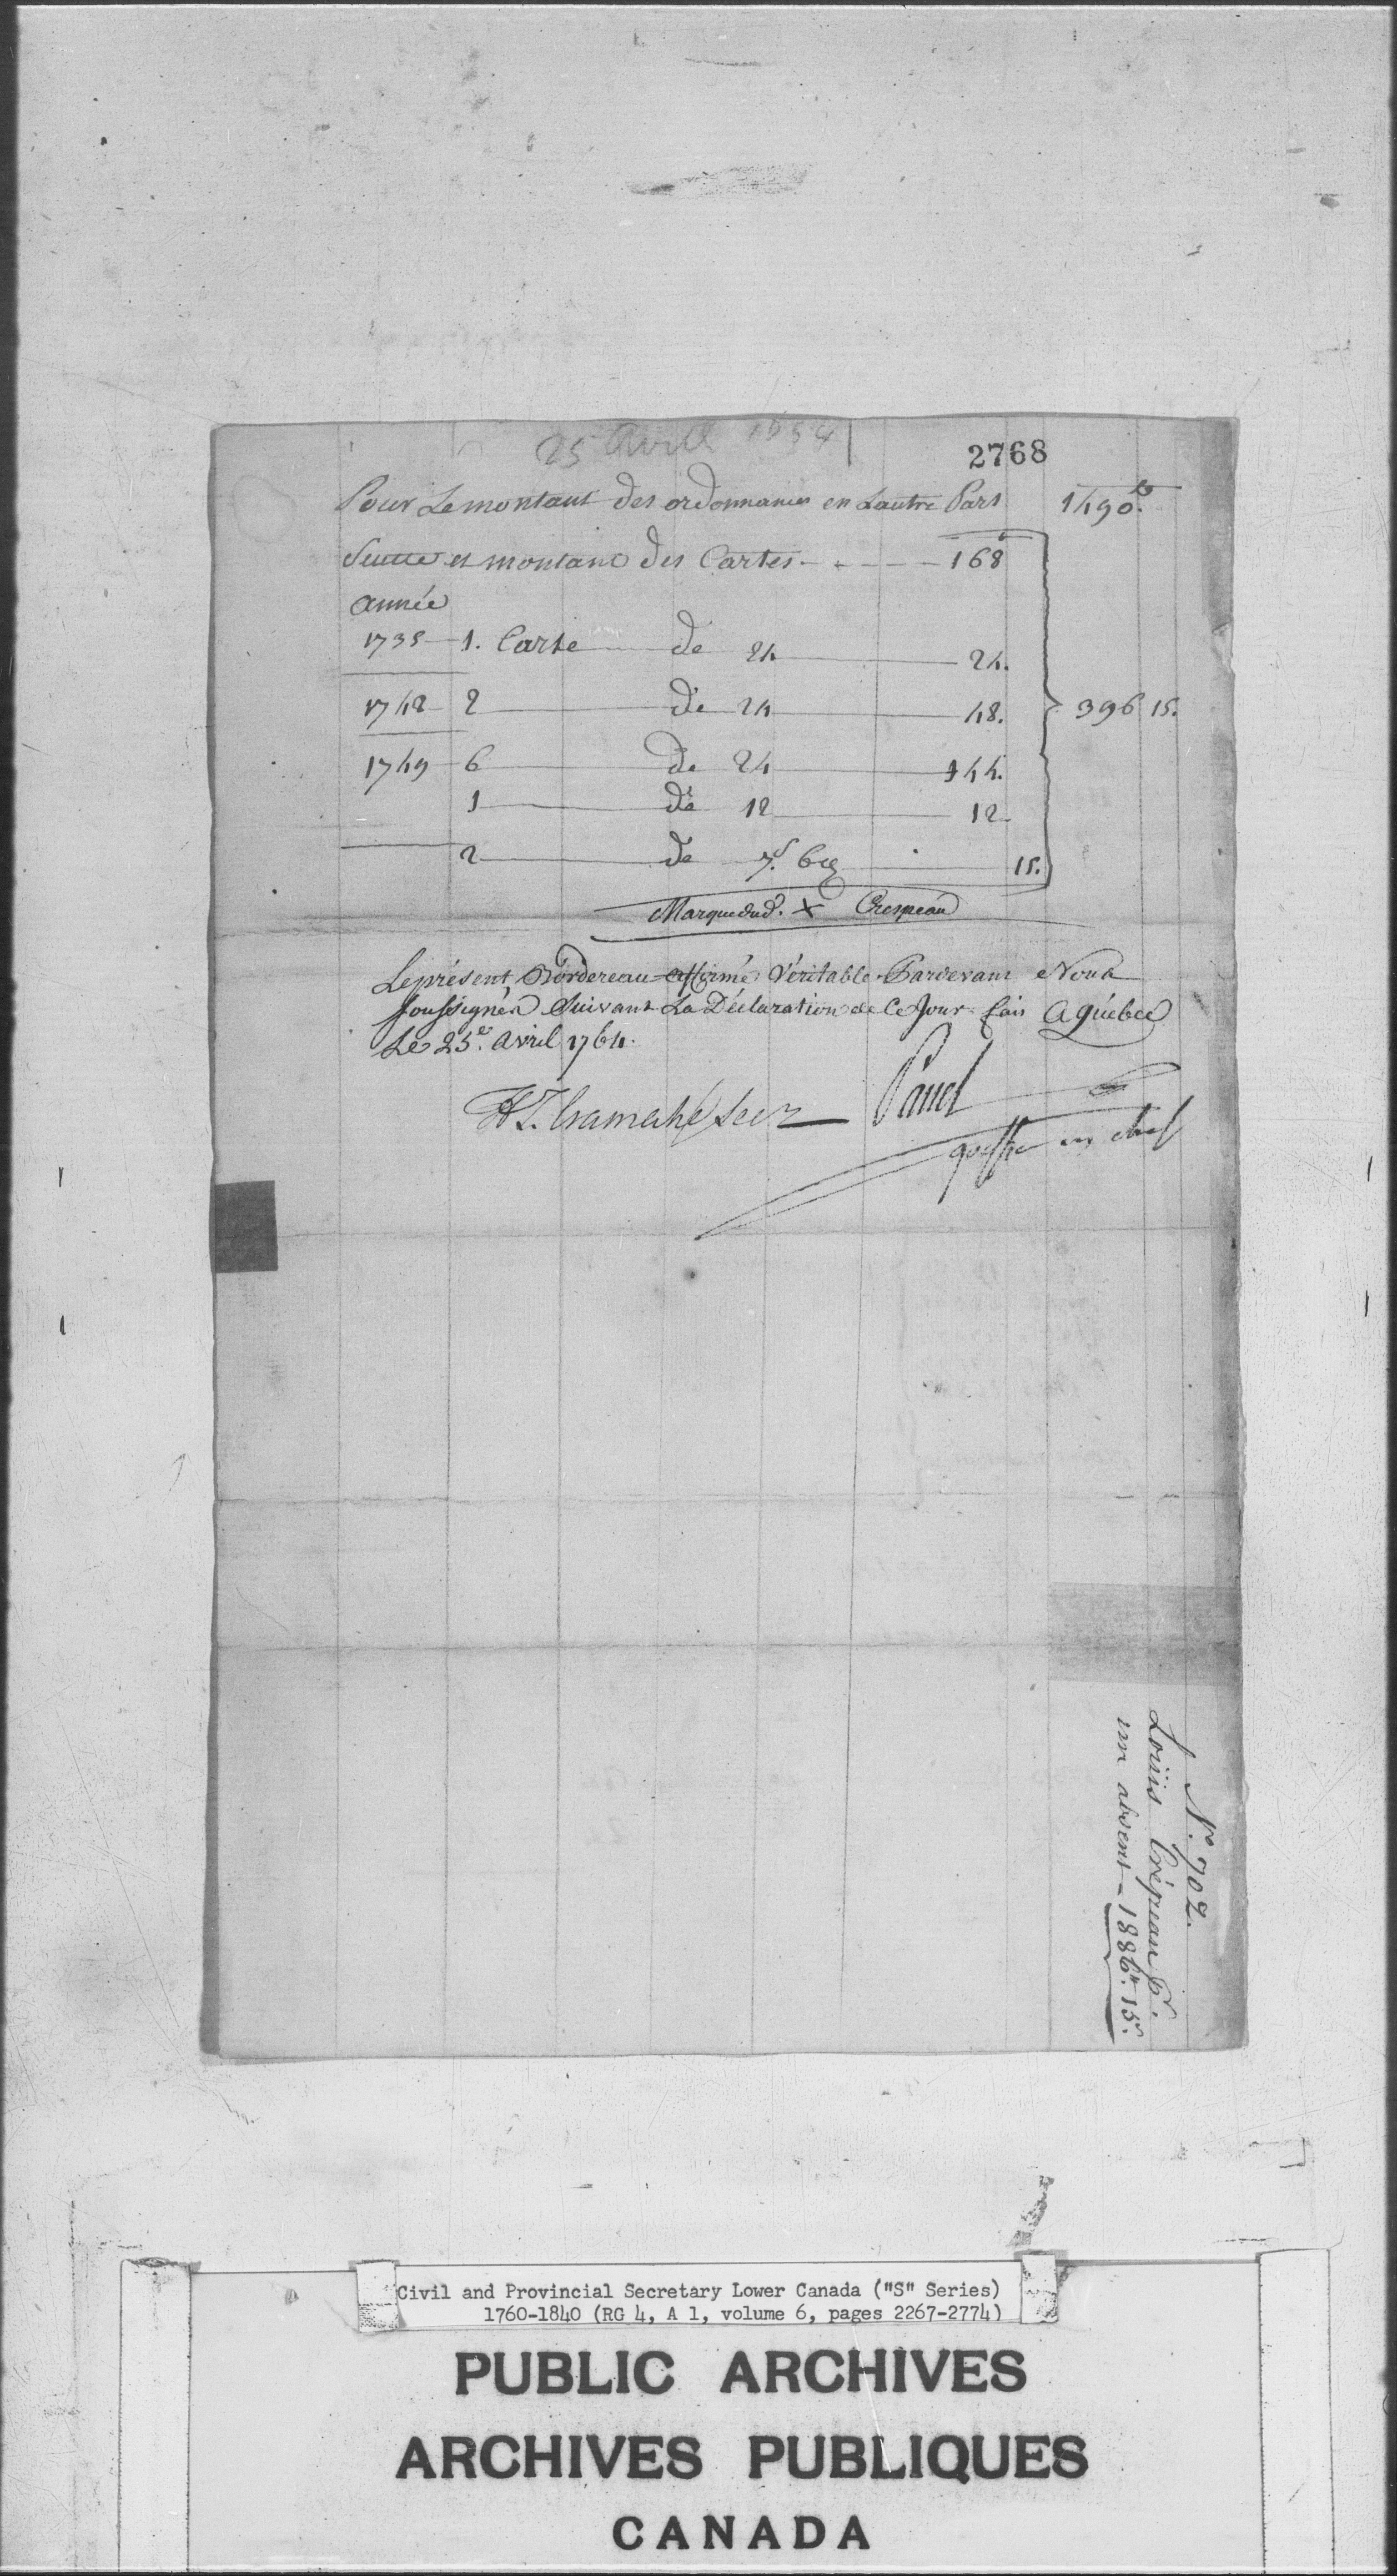 25 Avril 1764
2768
Pour Le montant des ordonnances en Lautre Part 1490.tt
Suitte et montant des Cartes - - - - - 168
année
1735 1. Carte de 24 24.
1742 2 de 24 48. 396 15.
1749 6 de 24 144.
1 de 12 12
2 de 7.s 6d 15.
Marque dud. X Crespeau
Le présent Bordereau affirmé Véritable Pardevant Nous
soussignés suivant La Déclaration de Ce Jour fait a Québec
Le 25e. avril 1764.
HT. Cramahé Secr Panet
greffier en chef
N°. 702.
Loüis Crépeau pr.
un absent - 1886tt. 15s.
Civil and Provincial Secretary Lower Canada ("S" Series)
1760-1840 (RG 4, A 1, volume 6, pages 2267-2774)
PUBLIC ARCHIVES
ARCHIVES PUBLIQUES
CANADA